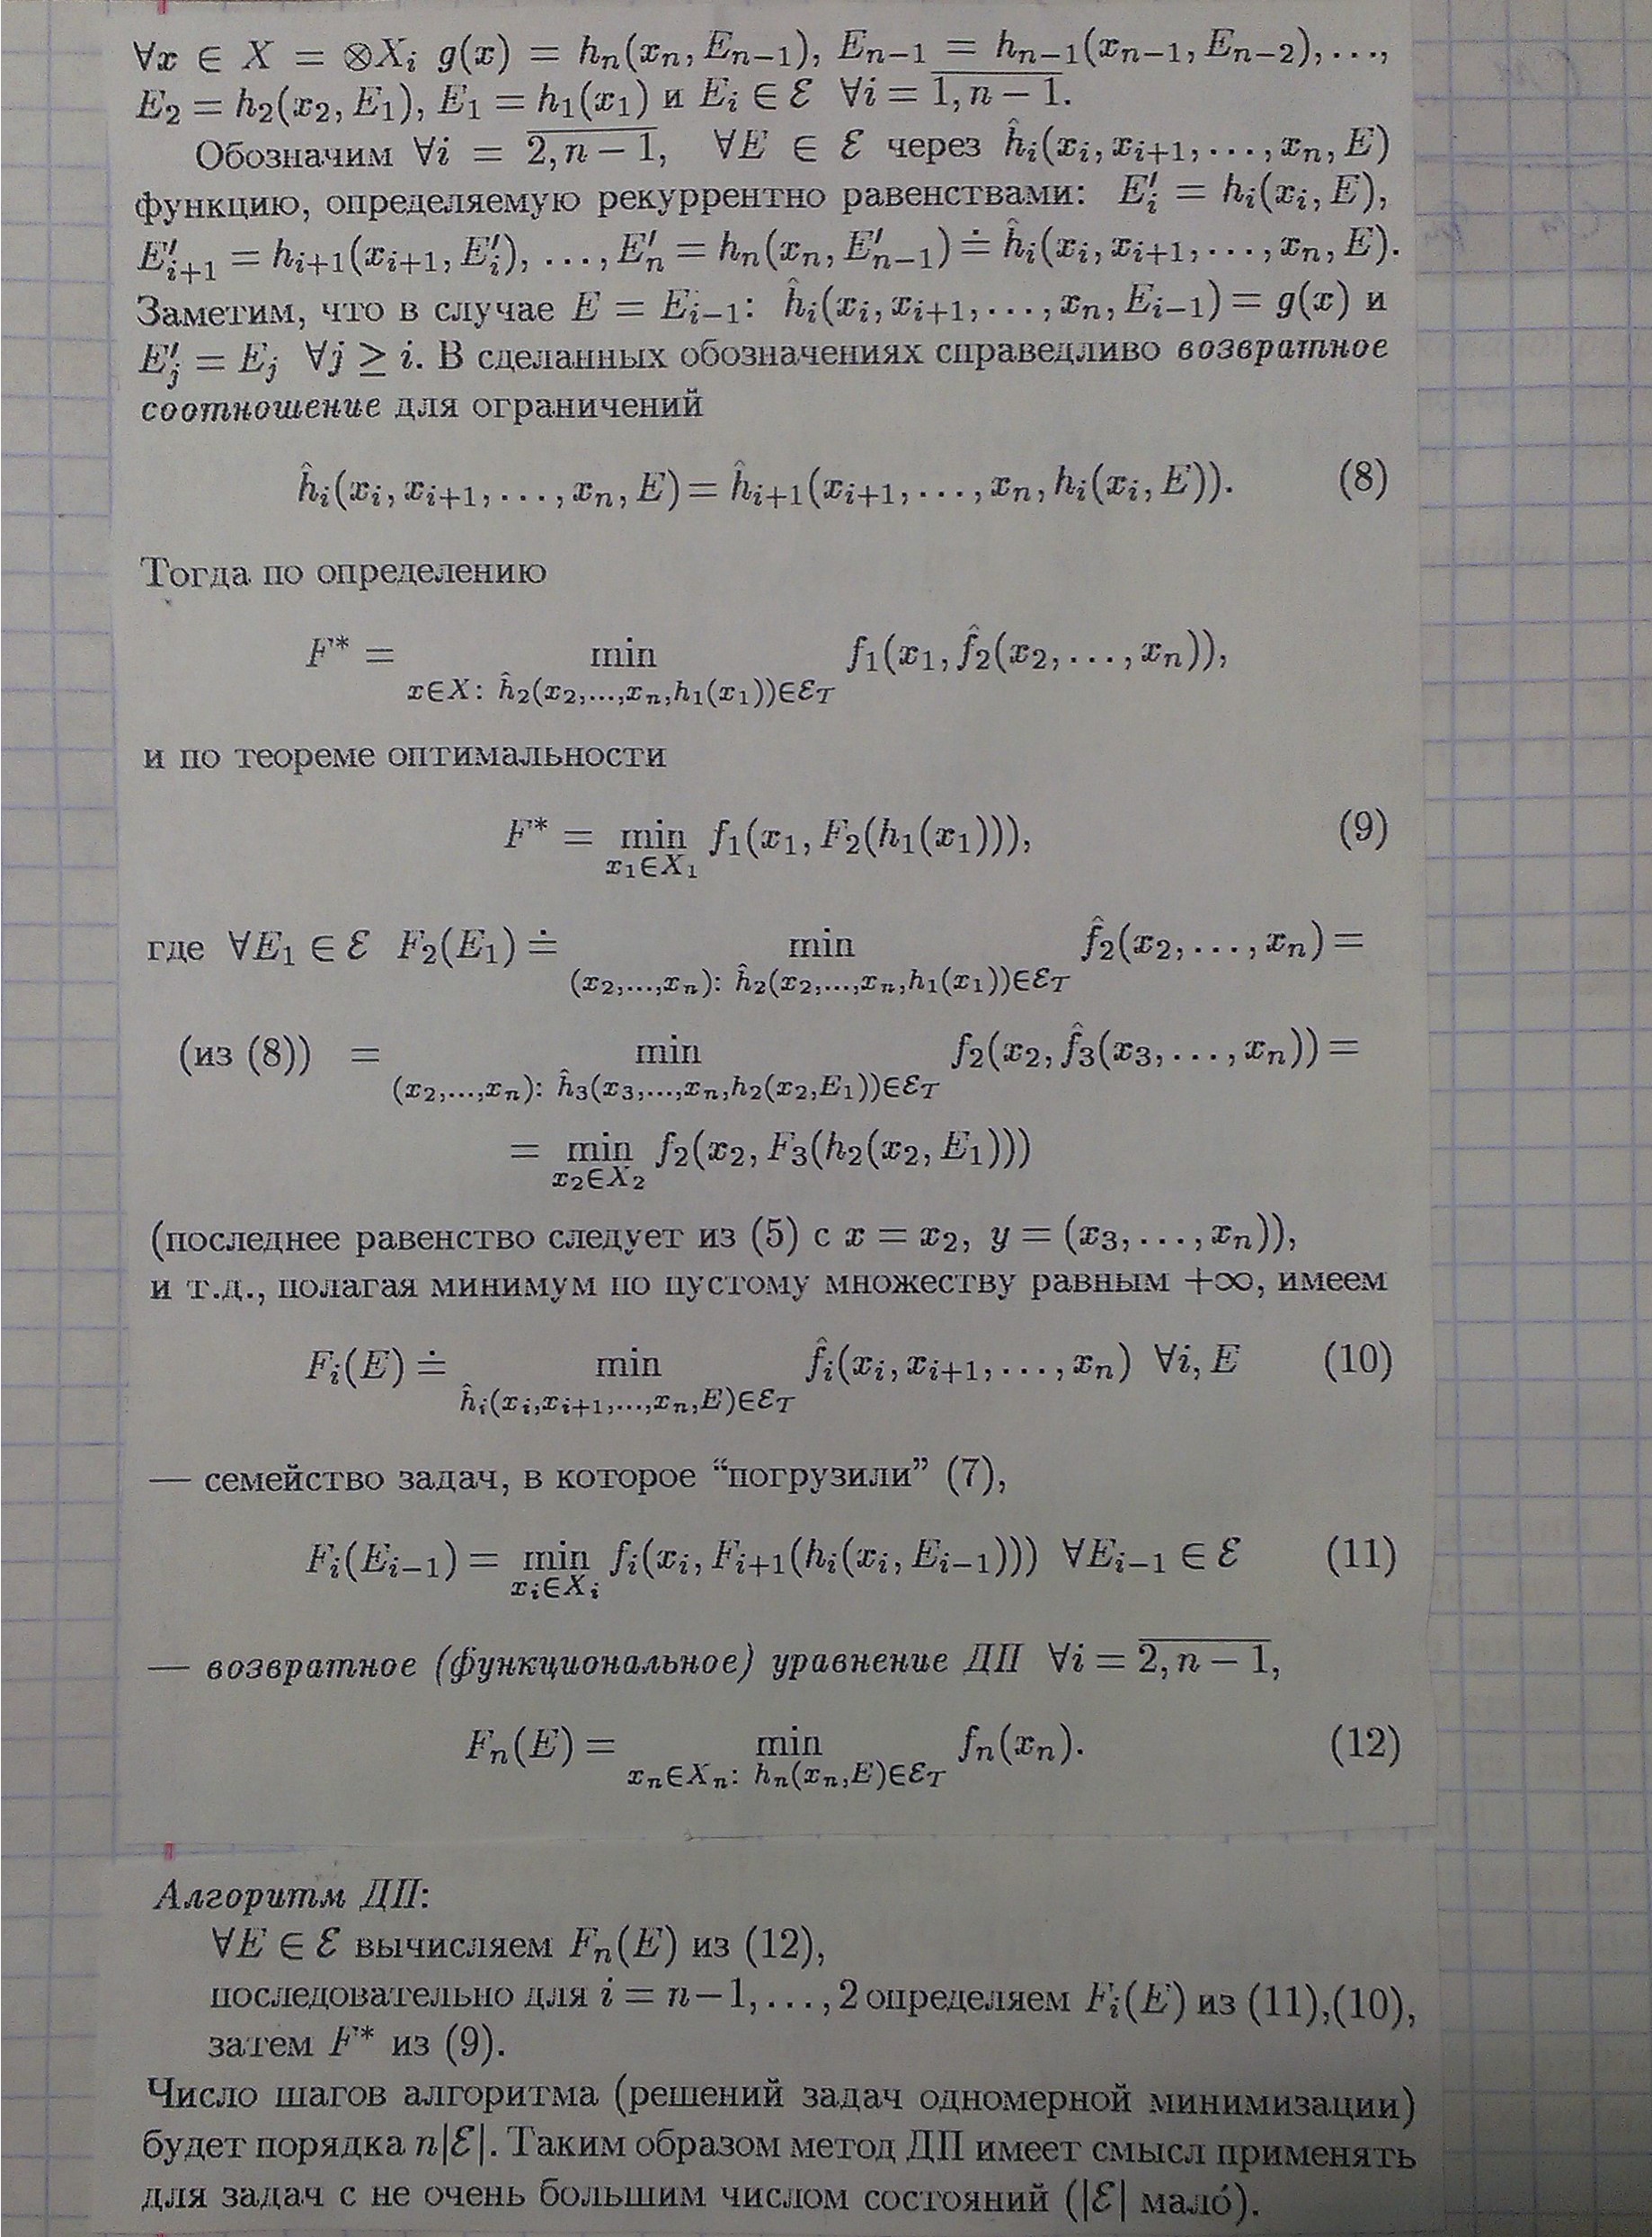 ∀x ∈ X = ⊗Xᵢ g(x) = hₙ(xₙ, Eₙ₋₁), Eₙ₋₁ = hₙ₋₁(xₙ₋₁, Eₙ₋₂), …,
E₂ = h₂(x₂, E₁), E₁ = h₁(x₁) и Eᵢ ∈ ℰ ∀i = \overline{1, n − 1}.
Обозначим ∀i = \overline{2, n − 1}, ∀E ∈ ℰ через ĥᵢ(xᵢ, xᵢ₊₁, …, xₙ, E)
функцию, определяемую рекуррентно равенствами: E′ᵢ = hᵢ(xᵢ, E),
E′ᵢ₊₁ = hᵢ₊₁(xᵢ₊₁, E′ᵢ), …, E′ₙ = hₙ(xₙ, E′ₙ₋₁) ≐ ĥᵢ(xᵢ, xᵢ₊₁, …, xₙ, E).
Заметим, что в случае E = Eᵢ₋₁: ĥᵢ(xᵢ, xᵢ₊₁, …, xₙ, Eᵢ₋₁) = g(x) и
E′ⱼ = Eⱼ ∀j ≥ i. В сделанных обозначениях справедливо возвратное
соотношение для ограничений
ĥᵢ(xᵢ, xᵢ₊₁, …, xₙ, E) = ĥᵢ₊₁(xᵢ₊₁, …, xₙ, hᵢ(xᵢ, E)). (8)
Тогда по определению
F* = min f₁(x₁, f̂₂(x₂, …, xₙ)),
x∈X: ĥ₂(x₂,…,xₙ,h₁(x₁))∈ℰ_𝒯
и по теореме оптимальности
F* = min f₁(x₁, F₂(h₁(x₁))), (9)
x₁∈X₁
где ∀E₁ ∈ ℰ F₂(E₁) ≐ min f̂₂(x₂, …, xₙ) =
(x₂,…,xₙ): ĥ₂(x₂,…,xₙ,h₁(x₁))∈ℰ_𝒯
(из (8)) = min f₂(x₂, f̂₃(x₃, …, xₙ)) =
(x₂,…,xₙ): ĥ₃(x₃,…,xₙ,h₂(x₂,E₁))∈ℰ_𝒯
= min f₂(x₂, F₃(h₂(x₂, E₁)))
x₂∈X₂
(последнее равенство следует из (5) с x = x₂, y = (x₃, …, xₙ)),
и т.д., полагая минимум по пустому множеству равным +∞, имеем
Fᵢ(E) ≐ min f̂ᵢ(xᵢ, xᵢ₊₁, …, xₙ) ∀i, E (10)
ĥᵢ(xᵢ,xᵢ₊₁,…,xₙ,E)∈ℰ_𝒯
— семейство задач, в которое “погрузили” (7),
Fᵢ(Eᵢ₋₁) = min fᵢ(xᵢ, Fᵢ₊₁(hᵢ(xᵢ, Eᵢ₋₁))) ∀Eᵢ₋₁ ∈ ℰ (11)
xᵢ∈Xᵢ
— возвратное (функциональное) уравнение ДП ∀i = \overline{2, n − 1},
Fₙ(E) = min fₙ(xₙ). (12)
xₙ∈Xₙ: hₙ(xₙ,E)∈ℰ_𝒯
Алгоритм ДП:
∀E ∈ ℰ вычисляем Fₙ(E) из (12),
последовательно для i = n−1, …, 2 определяем Fᵢ(E) из (11),(10),
затем F* из (9).
Число шагов алгоритма (решений задач одномерной минимизации)
будет порядка n|ℰ|. Таким образом метод ДП имеет смысл применять
для задач с не очень большим числом состояний (|ℰ| мало́).